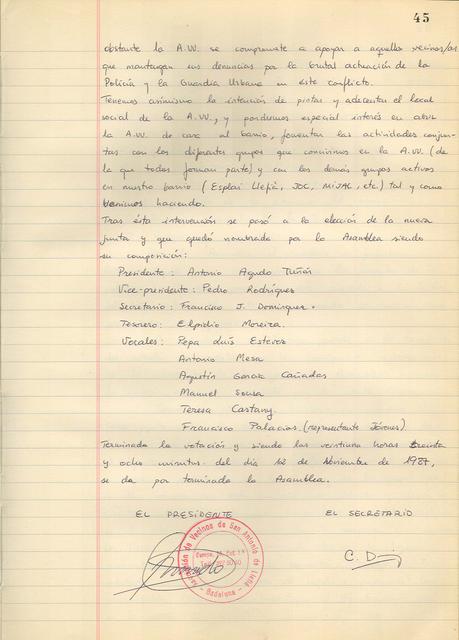 45
obstante la A.VV. se compromete a apoyar a aquellos vecinos/as
que mantengan sus denuncias por la brutal actuación de la
Policía y la Guardia Urbana en este conflicto.
Tenemos asimismo la intención de pintar y adecentar el local
social de la A.VV., y pondremos especial interés en abrir
la A.VV. de cara al barrio, fomentar las actividades conjun-
tas con los diferentes grupos que convivimos en la A.VV. (de
la que todos forman parte) y con los demás grupos activos
en nuestro barrio (Esplai Llefià, JOC, MIJAC, etc.) tal y como
venimos haciendo.
Tras ésta intervención se pasó a la elección de la nueva
junta y que quedó nombrada por la Asamblea siendo
su composición:
Presidente: Antonio Agudo Tuñón
Vice-presidente: Pedro Rodríguez
Secretario: Francisco J. Domínguez.
Tesorero: Elpidio Moreira.
Vocales: Pepa Luís Estevez
Antonio Mesa
Agustín García Cañadas
Manuel Sousa
Teresa Castany
Francisco Palacios. (representante Jóvenes)
Terminada la votación y siendo las veintiuna horas treinta
y ocho minutos del día 12 de Noviembre de 1987,
se da por terminada la Asamblea.
EL PRESIDENTE EL SECRETARIO
Asociación de Vecinos de San Antonio de Llefià
Badalona